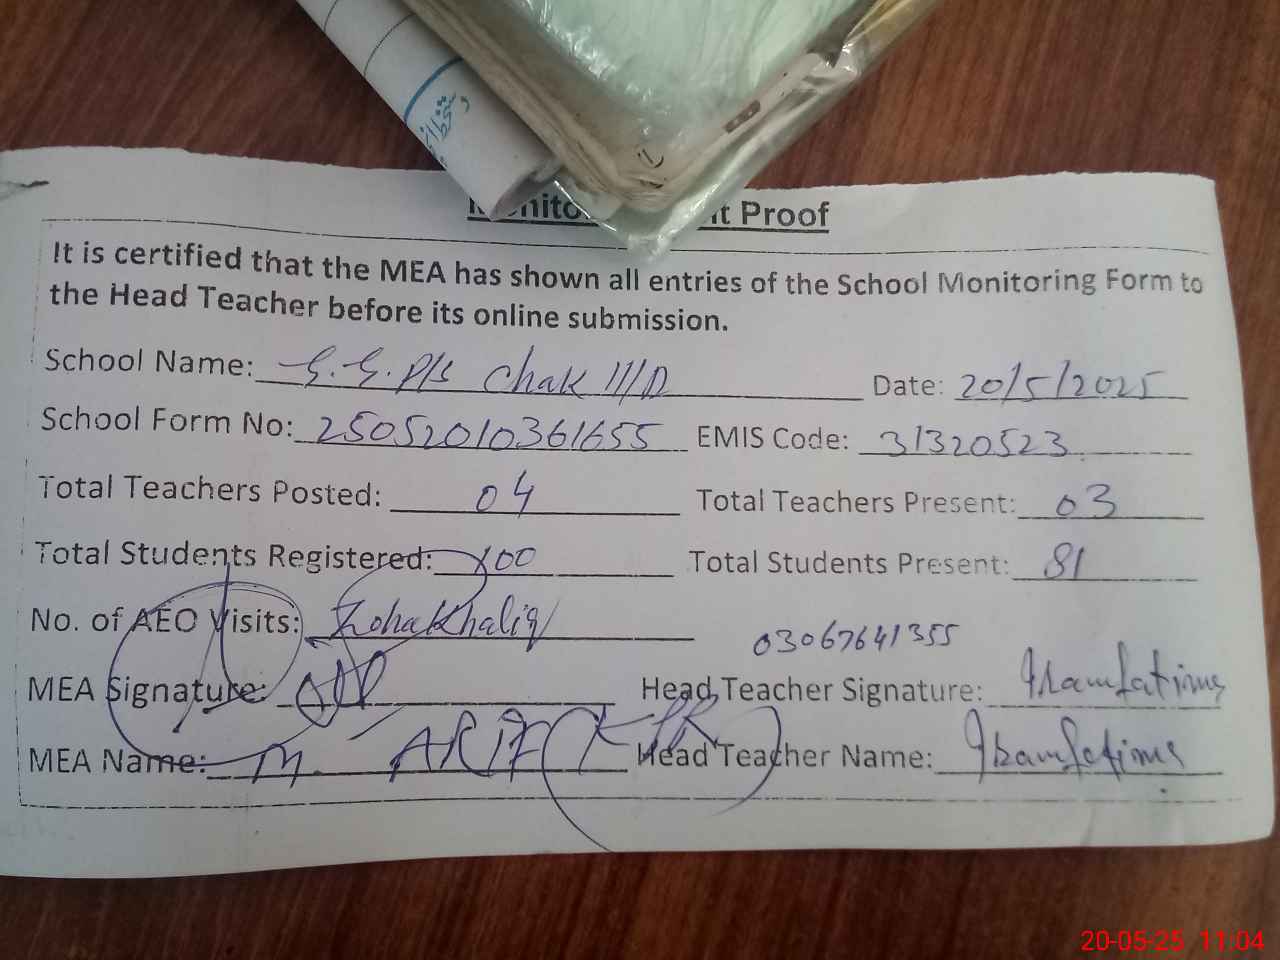 Proof
It is certified that the MEA has shown all entries of the School Monitoring Form to
the Head Teacher before its online submission.
School Name: G.G.P/S Chak 111/D Date: 20/5/2025
School Form No: 25052010361655 EMIS Code: 31320523
Total Teachers Posted: 04 Total Teachers Present: 03
Total Students Registered: 100 Total Students Present: 81
No. of AEO Visits: Zoha Khaliq 03067641355
MEA Signature: Head Teacher Signature: Ikram fatima
MEA Name: M. ARIF Head Teacher Name: Ikram fatima
20-05-25 11:04